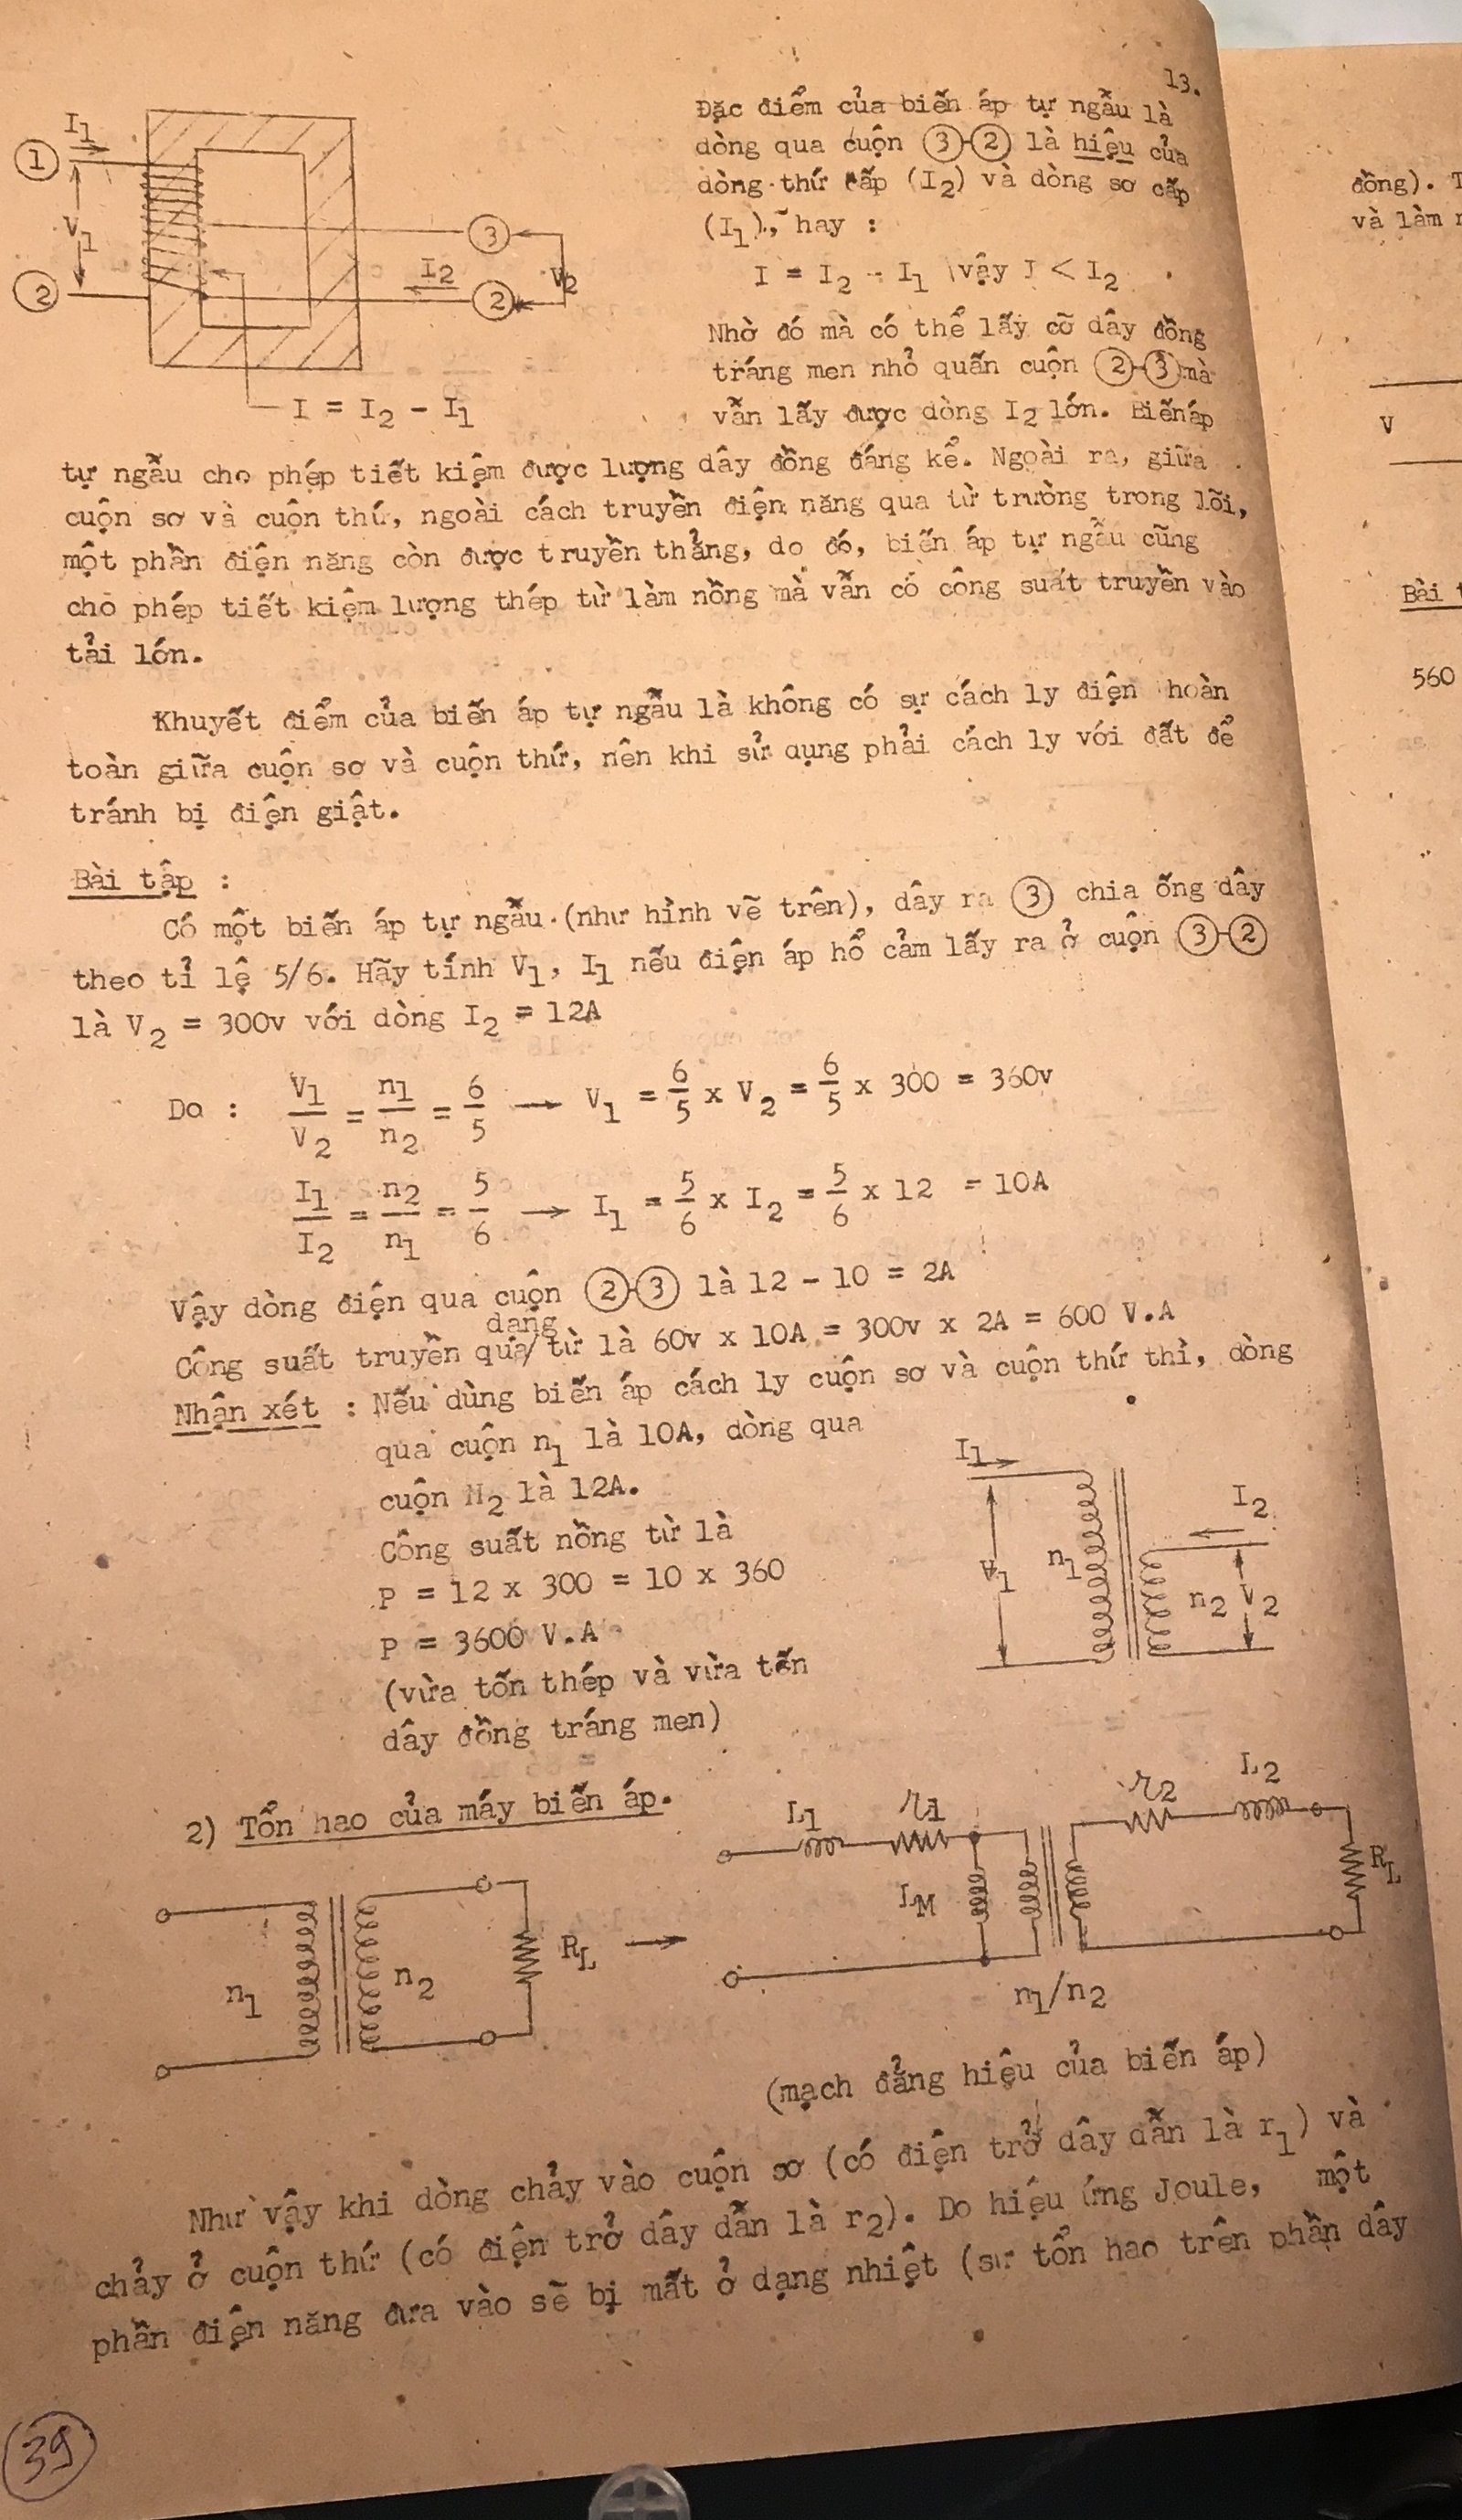 13.
I1
1
V1
2
3
I2
2
V2
I = I2 - I1
Đặc điểm của biến áp tự ngẫu là
dòng qua cuộn 3-2 là hiệu của
dòng thứ cấp (I2) và dòng sơ cấp
(I1), hay :
I = I2 - I1 vậy I < I2
Nhờ đó mà có thể lấy cỡ dây đồng
tráng men nhỏ quấn cuộn 2-3 mà
vẫn lấy được dòng I2 lớn. Biến áp
tự ngẫu cho phép tiết kiệm được lượng dây đồng đáng kể. Ngoài ra, giữa
cuộn sơ và cuộn thứ, ngoài cách truyền điện năng qua từ trường trong lõi,
một phần điện năng còn được truyền thẳng, do đó, biến áp tự ngẫu cũng
cho phép tiết kiệm lượng thép từ làm nồng mà vẫn có công suất truyền vào
tải lớn.
Khuyết điểm của biến áp tự ngẫu là không có sự cách ly điện hoàn
toàn giữa cuộn sơ và cuộn thứ, nên khi sử dụng phải cách ly với đất để
tránh bị điện giật.
Bài tập :
Có một biến áp tự ngẫu (như hình vẽ trên), dây ra 3 chia ống dây
theo tỉ lệ 5/6. Hãy tính V1, I1 nếu điện áp hổ cảm lấy ra ở cuộn 3-2
là V2 = 300v với dòng I2 = 12A
Do : V1/V2 = n1/n2 = 6/5 → V1 = 6/5 x V2 = 6/5 x 300 = 360v
I1/I2 = n2/n1 = 5/6 → I1 = 5/6 x I2 = 5/6 x 12 = 10A
Vậy dòng điện qua cuộn 2-3 là 12 - 10 = 2A
dạng
Công suất truyền qua/ từ là 60v x 10A = 300v x 2A = 600 V.A
Nhận xét : Nếu dùng biến áp cách ly cuộn sơ và cuộn thứ thì, dòng
qua cuộn n1 là 10A, dòng qua
cuộn N2 là 12A.
Công suất nồng từ là
P = 12 x 300 = 10 x 360
P = 3600 V.A
(vừa tốn thép và vừa tốn
dây đồng tráng men)
I1
V1
n1
I2
n2
V2
2) Tổn hao của máy biến áp.
n1
n2
RL
L1
r1
LM
r2
L2
RL
n1/n2
(mạch đẳng hiệu của biến áp)
Như vậy khi dòng chảy vào cuộn sơ (có điện trở dây dẫn là r1) và
chảy ở cuộn thứ (có điện trở dây dẫn là r2). Do hiệu ứng Joule, một
phần điện năng đưa vào sẽ bị mất ở dạng nhiệt (sự tổn hao trên phần dây
39
đồng).
và làm
V
Bài
560